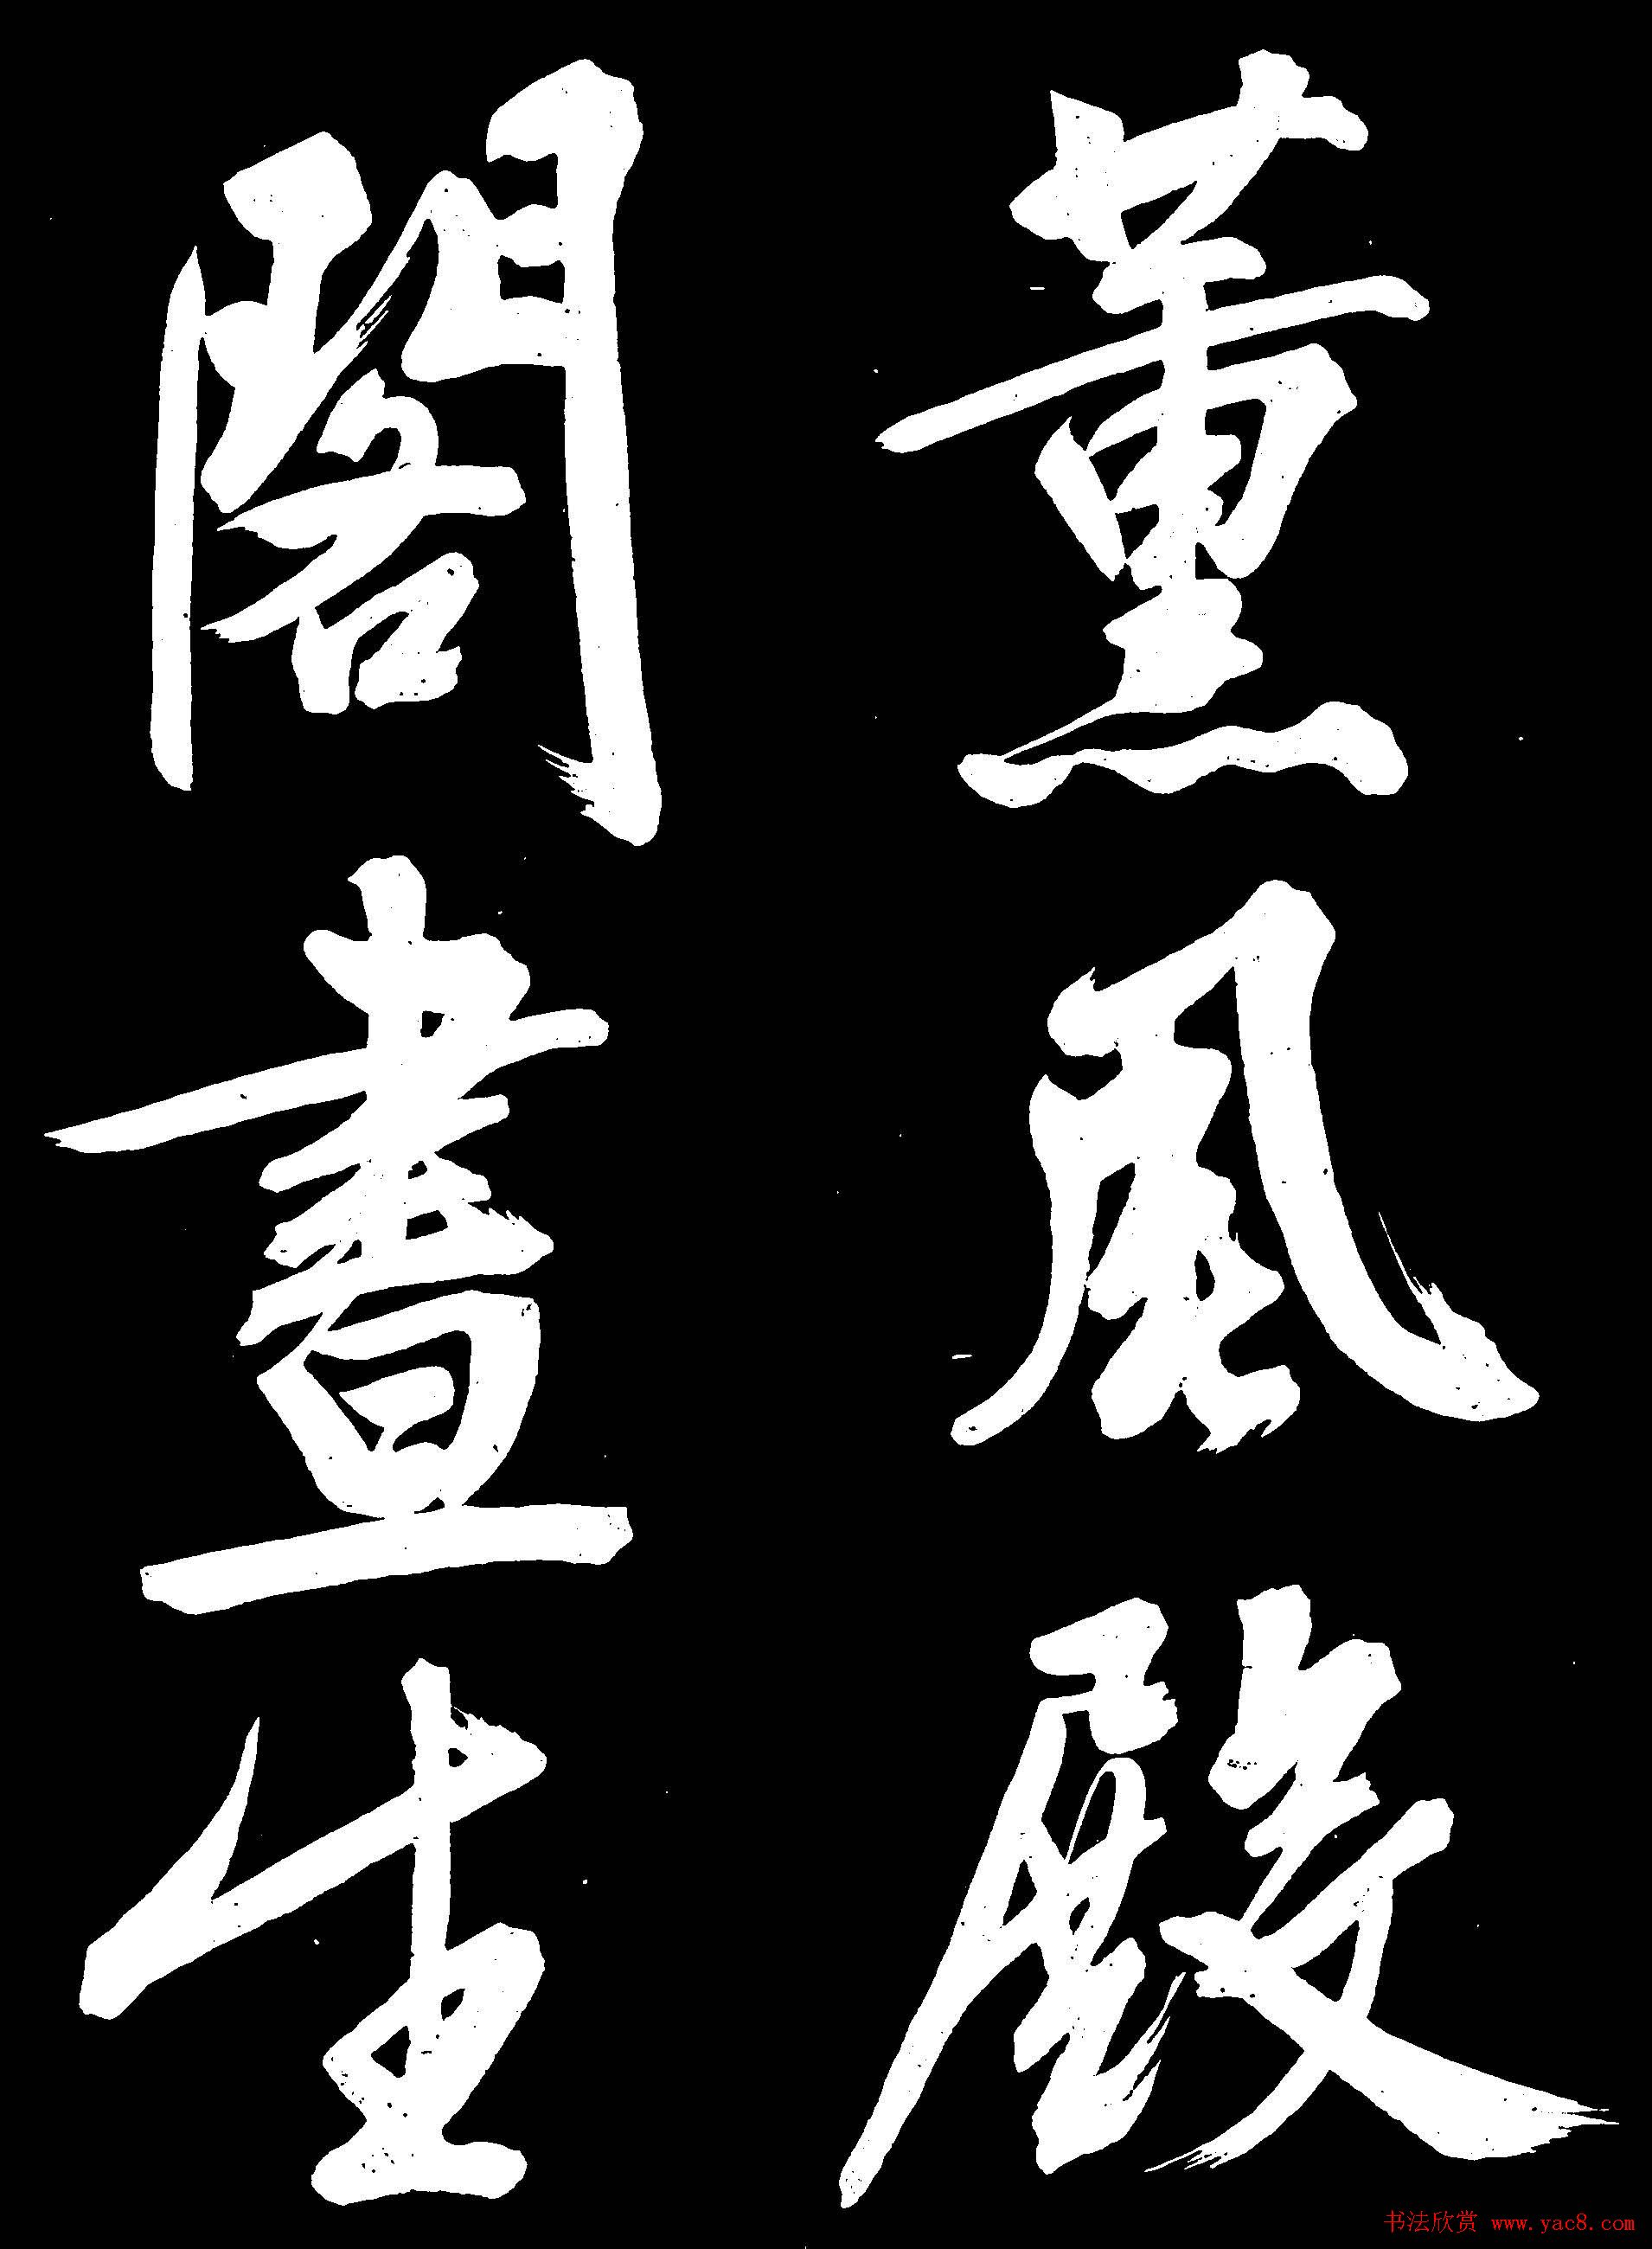 薰風殿
閣晝生
书法欣赏 www.yac8.com